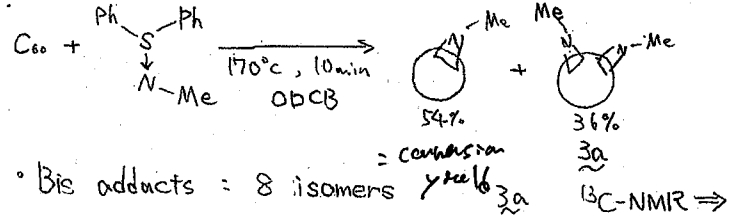 Ph Ph
C60 + S N-Me 170°C, 10min ODCB N-Me + Me N N-Me
54% 36%
= conversion yield 3a
• Bis adducts = 8 isomers 3a 13C-NMR ⇒